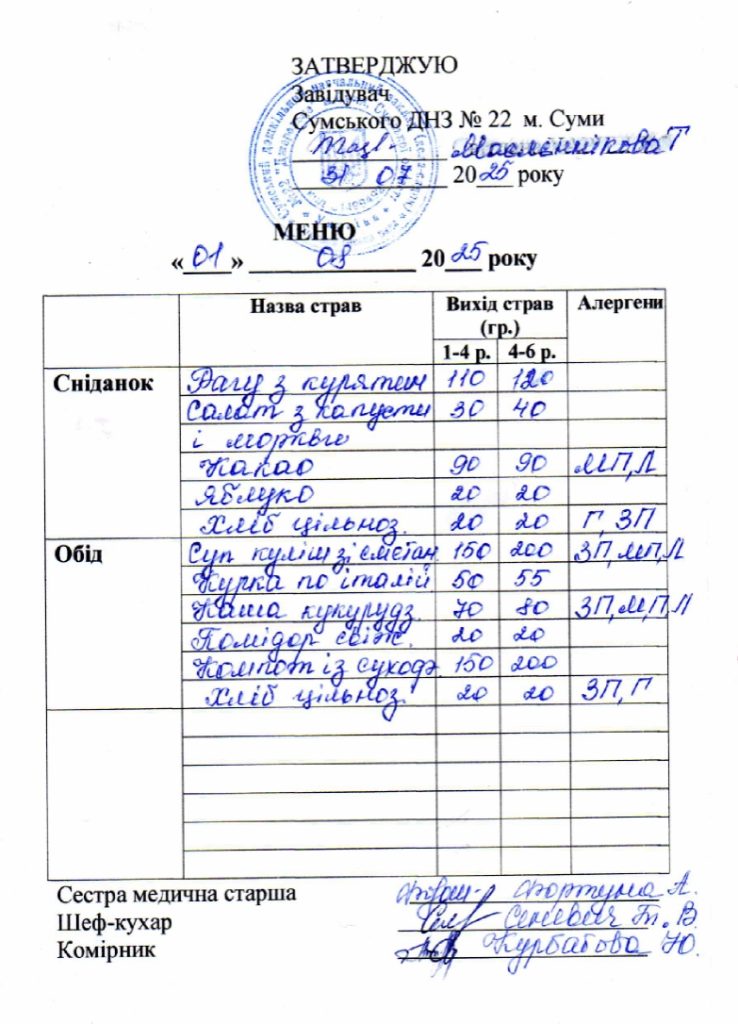 ЗАТВЕРДЖУЮ
Завідувач
Сумського ДНЗ № 22 м. Суми
Масленнікова Т
31 07 2025 року
МЕНЮ
«01» 08 2025 року
Назва страв Вихід страв (гр.) Алергени
1-4 р. 4-6 р.
Сніданок Рагу з курятин 110 120
Салат з капусти 30 40
і моркви
Какао 90 90 МП,Л
Яблуко 20 20
Хліб цільноз. 20 20 Г, ЗП
Обід Суп куліш зі сметан. 150 200 ЗП,МП,Л
Курка по італій 50 55
Каша кукурудз. 70 80 ЗП,М,П,Л
Помідор свіж. 20 20
Компот із сухофр. 150 200
Хліб цільноз. 20 20 ЗП,Г
Сестра медична старша Фортуна А.
Шеф-кухар Сенкевич Т. В.
Комірник Курбатова Ю.